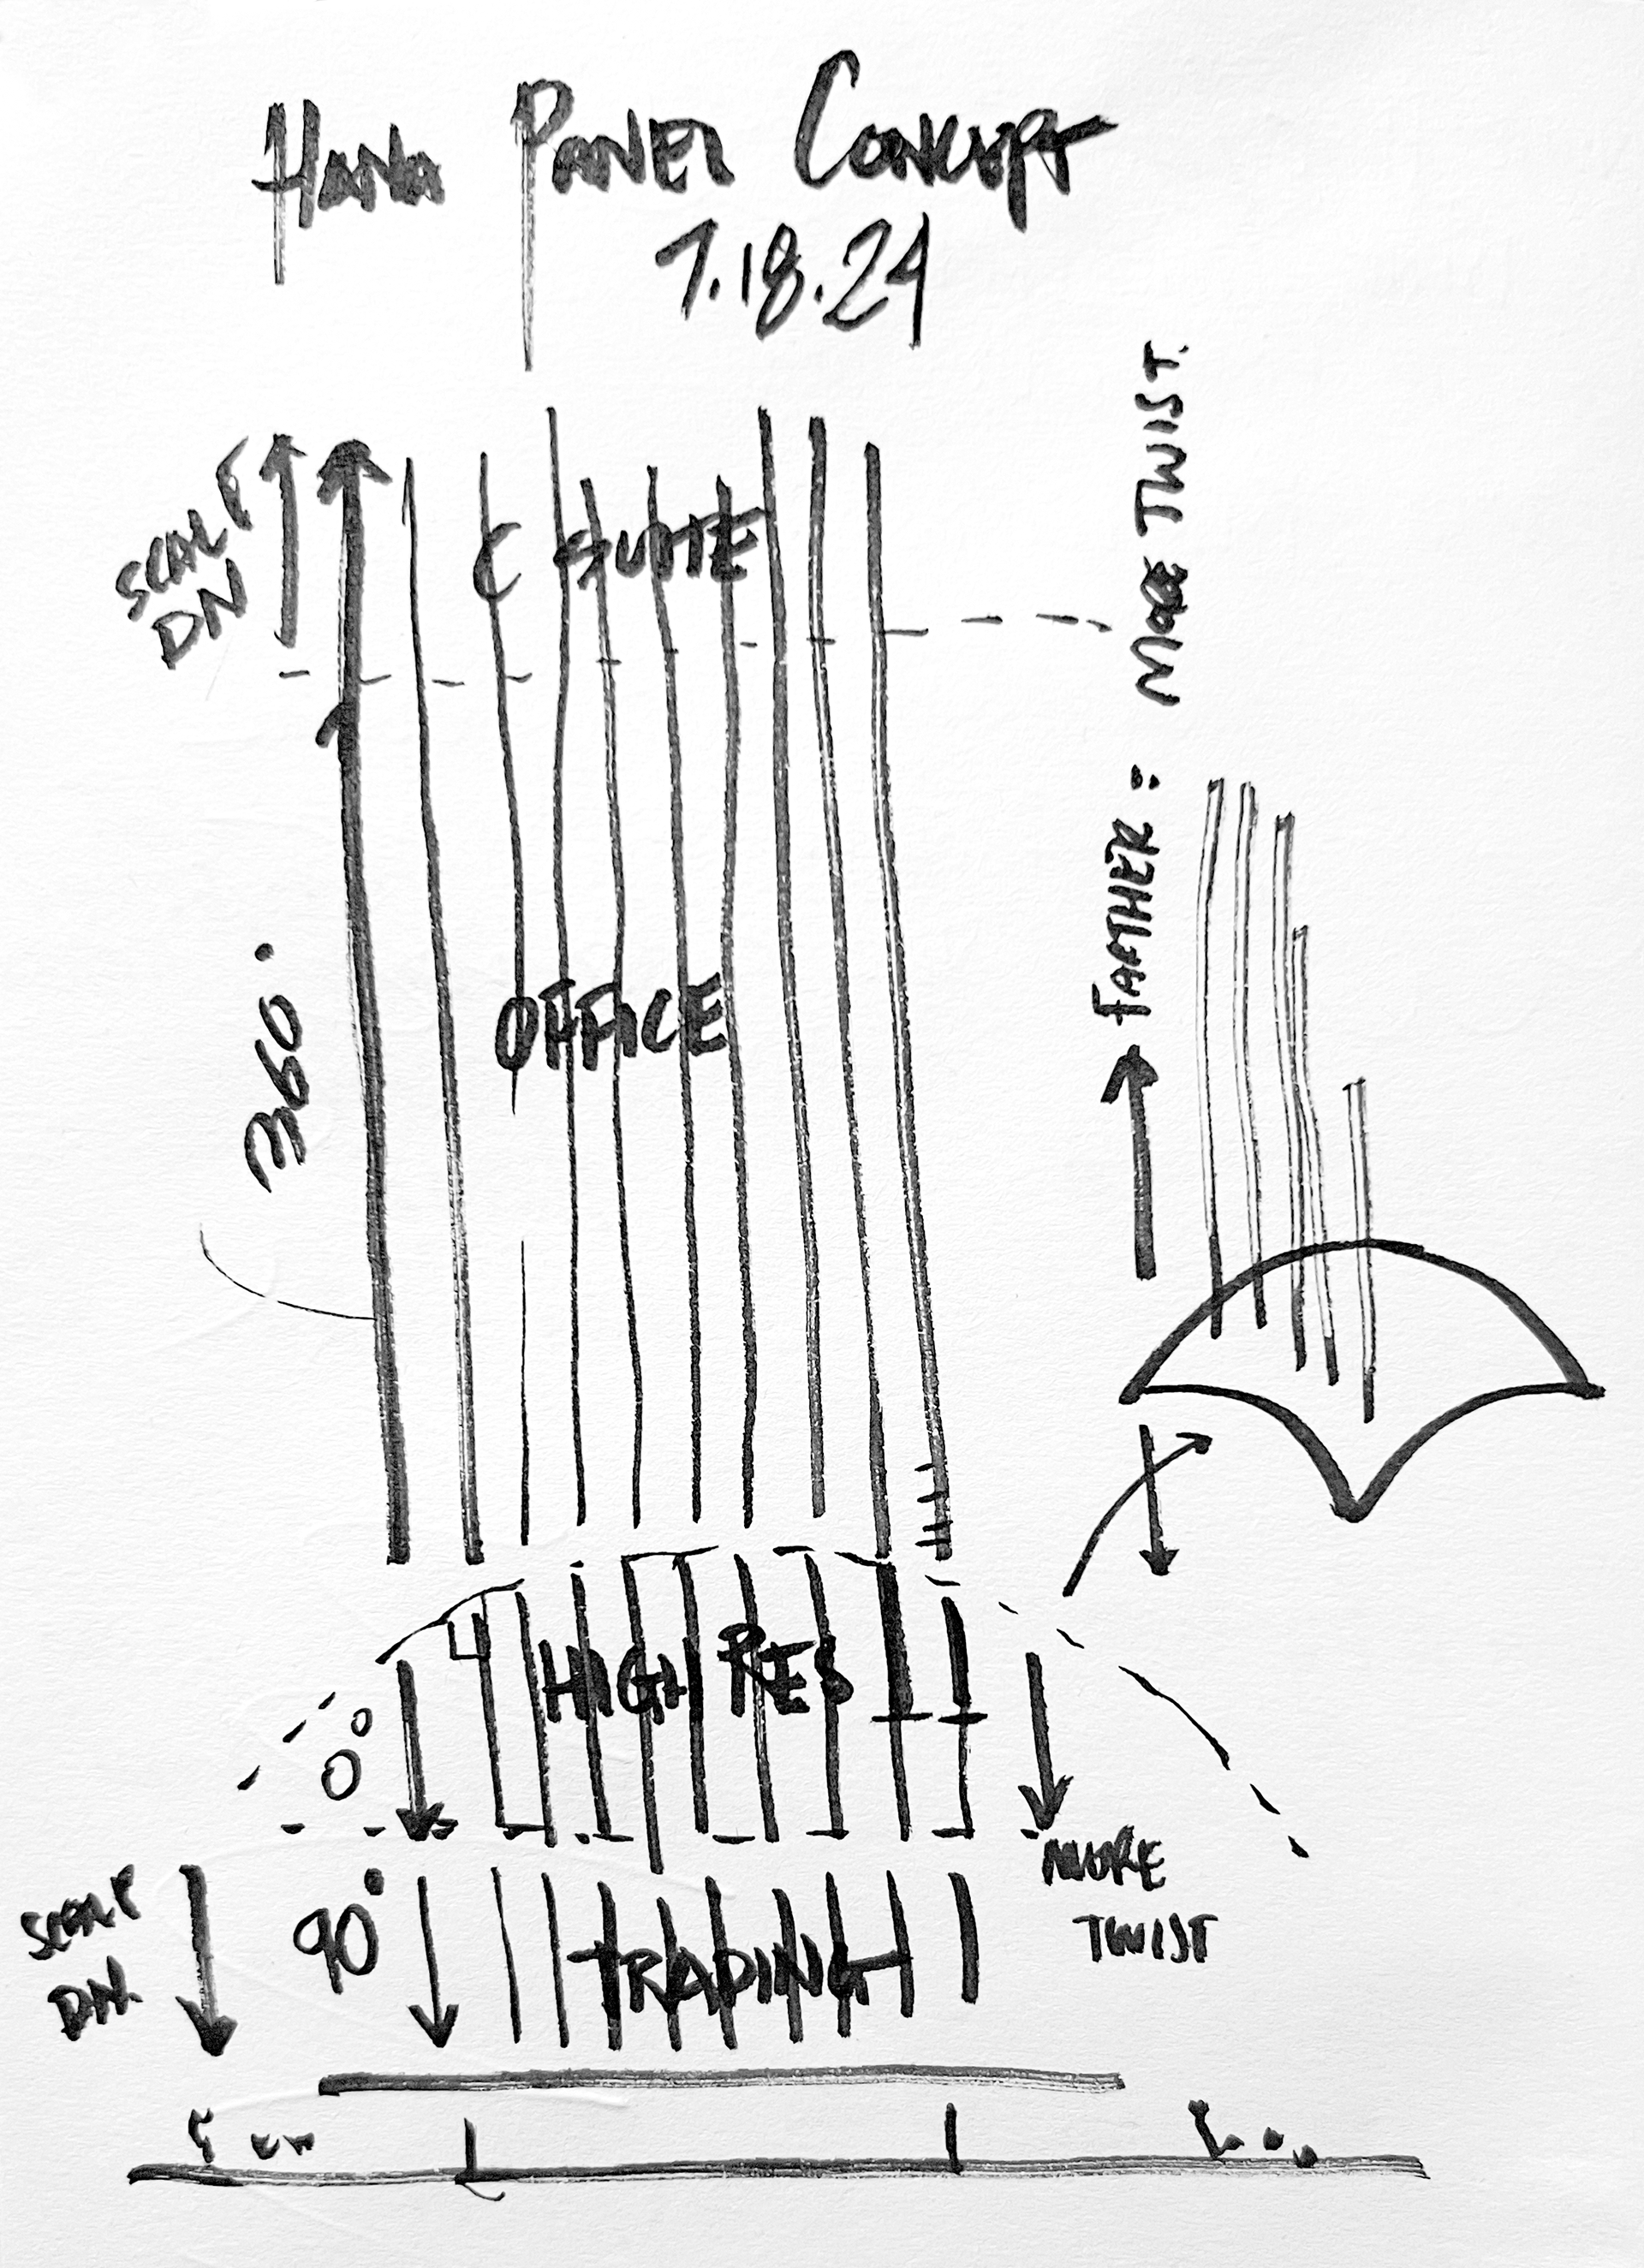 HANA PANEL CONCEPT
7.18.24
SCALE
DN
C SUITE
FARTHER: MORE TWIST.
360°
OFFICE
HIGH RES
0°
MORE
TWIST
SCALE
DN.
90°
TRADING